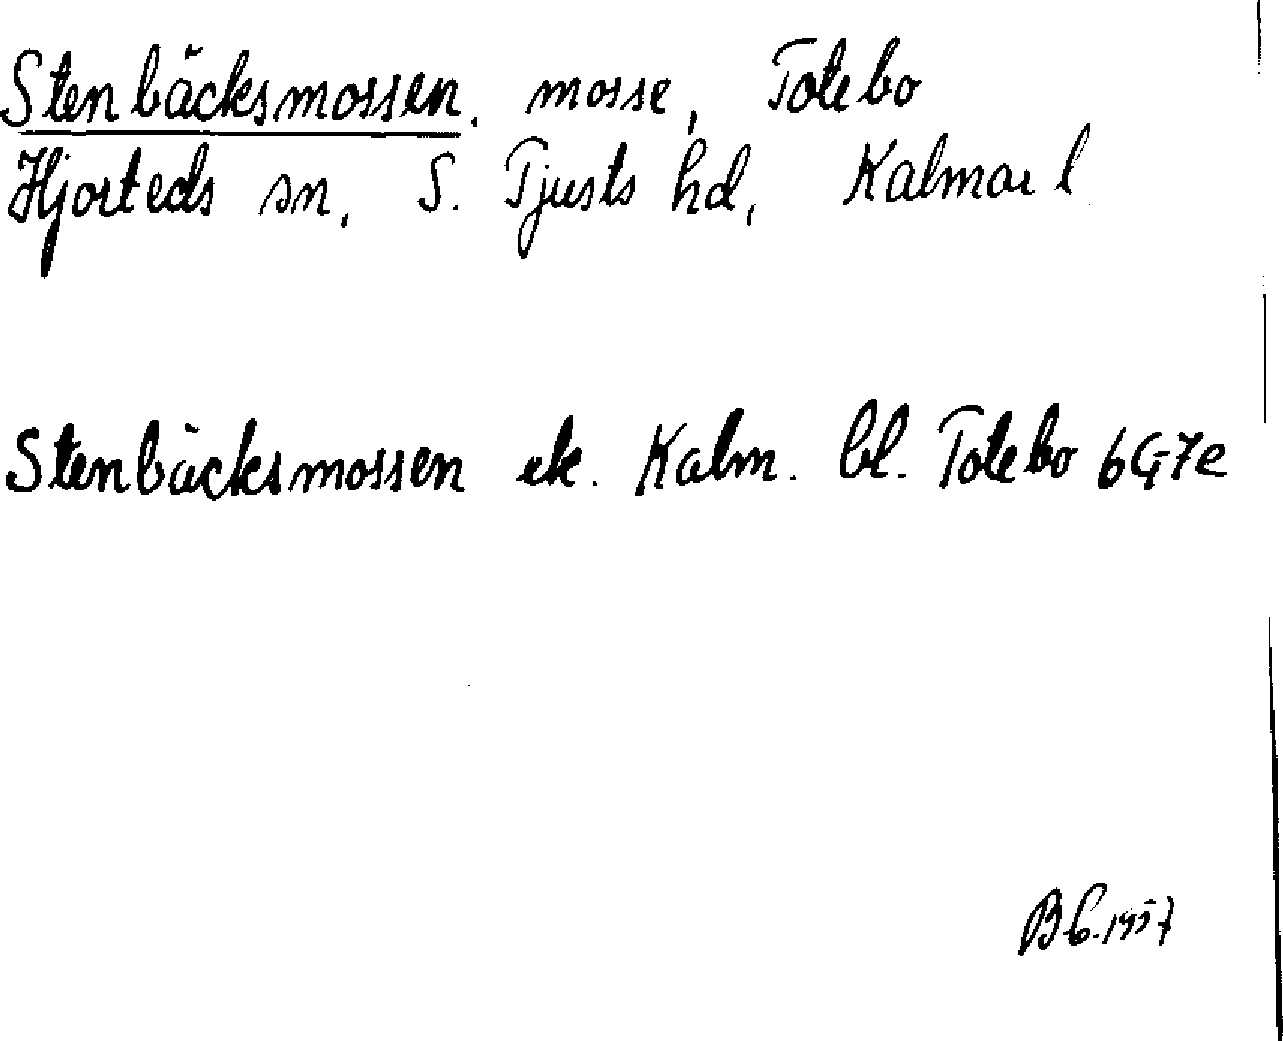 Stenbäcksmossen, mosse, Totebo
Hjorteds sn, S. Tjusts hd, Kalmar l
Stenbäcksmossen ek. Kalm. bl. Totebo 6G7e
1957